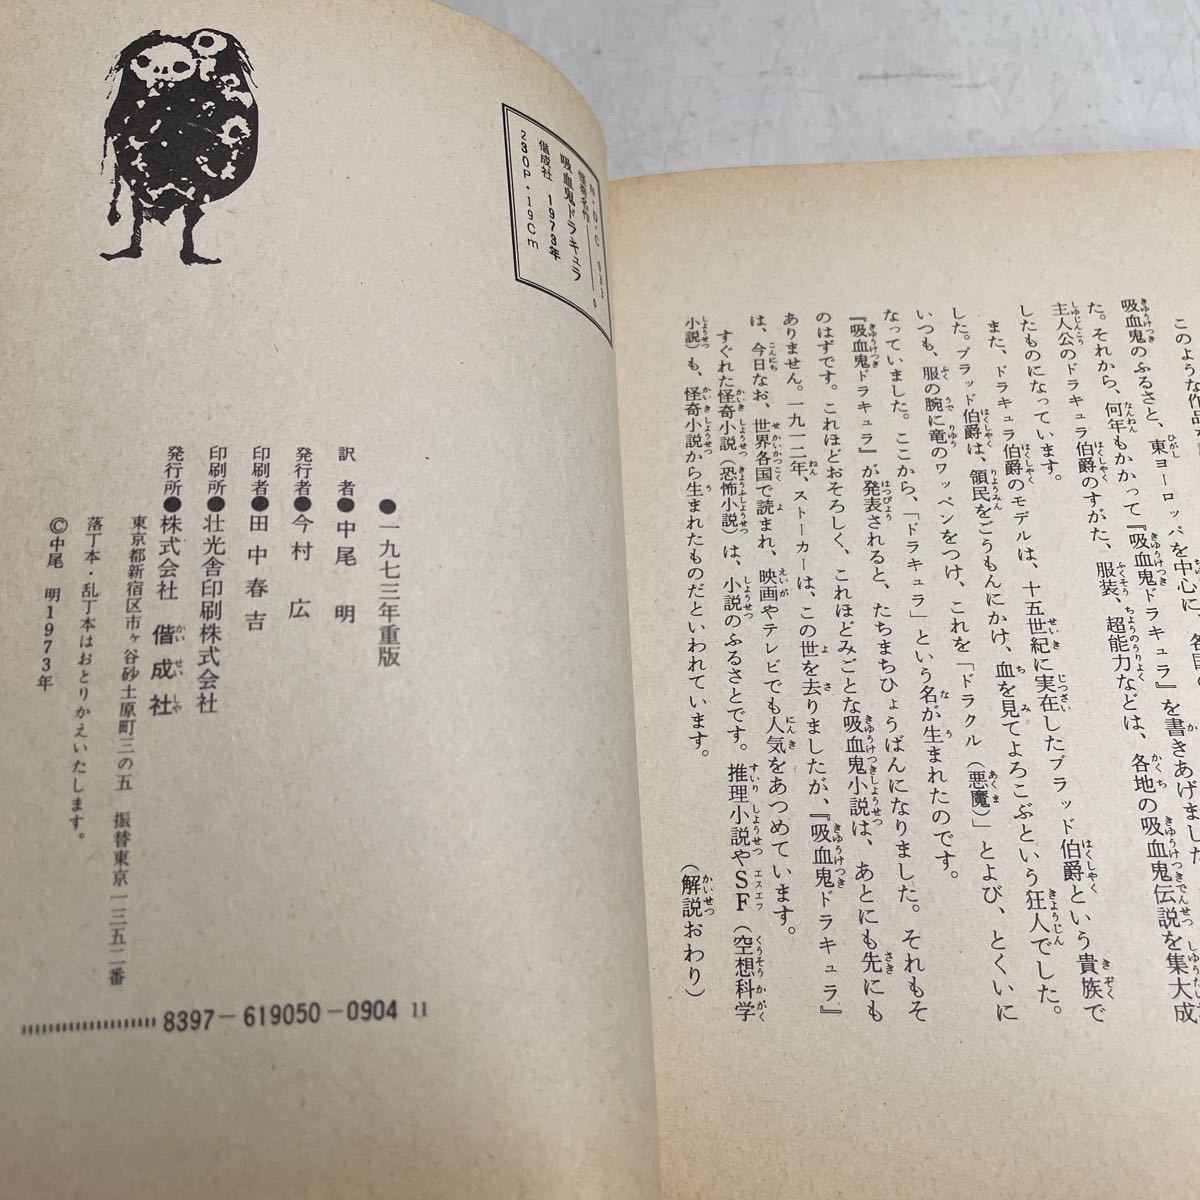 このような作品
吸血鬼のふるさと、東ヨーロッパを中心に、各国の
た。それから、何年もかかって『吸血鬼ドラキュラ』を書きあげました
主人公のドラキュラ伯爵のすがた、服装、超能力などは、各地の吸血鬼伝説を集大成
したものになっています。
また、ドラキュラ伯爵のモデルは、十五世紀に実在したブラッド伯爵という貴族で
した。ブラッド伯爵は、領民をごうもんにかけ、血を見てよろこぶという狂人でした。
いつも、服の腕に竜のワッペンをつけ、これを「ドラクル（悪魔）」とよび、とくいに
なっていました。ここから、「ドラキュラ」という名が生まれたのです。
『吸血鬼ドラキュラ』が発表されると、たちまちひょうばんになりました。それもそ
のはずです。これほどおそろしく、これほどみごとな吸血鬼小説は、あとにも先にも
ありません。一九一二年、ストーカーは、この世を去りましたが、『吸血鬼ドラキュラ』
は、今日なお、世界各国で読まれ、映画やテレビでも人気をあつめています。
すぐれた怪奇小説（恐怖小説）は、小説のふるさとです。推理小説やSF（空想科学
小説）も、怪奇小説から生まれたものだといわれています。
（解説おわり）
N・D・C
吸血鬼ドラキュラ
偕成社 1973年
230P・19cm
●一九七三年重版
訳者●中尾 明
発行者●今村 広
印刷者●田中春吉
印刷所●壮光舎印刷株式会社
発行所●株式会社 偕成社
東京都新宿区市ヶ谷砂土原町三の五 振替東京一三五二番
落丁本・乱丁本はおとりかえいたします。
©中尾 明1973年
8397-619050-0904 11